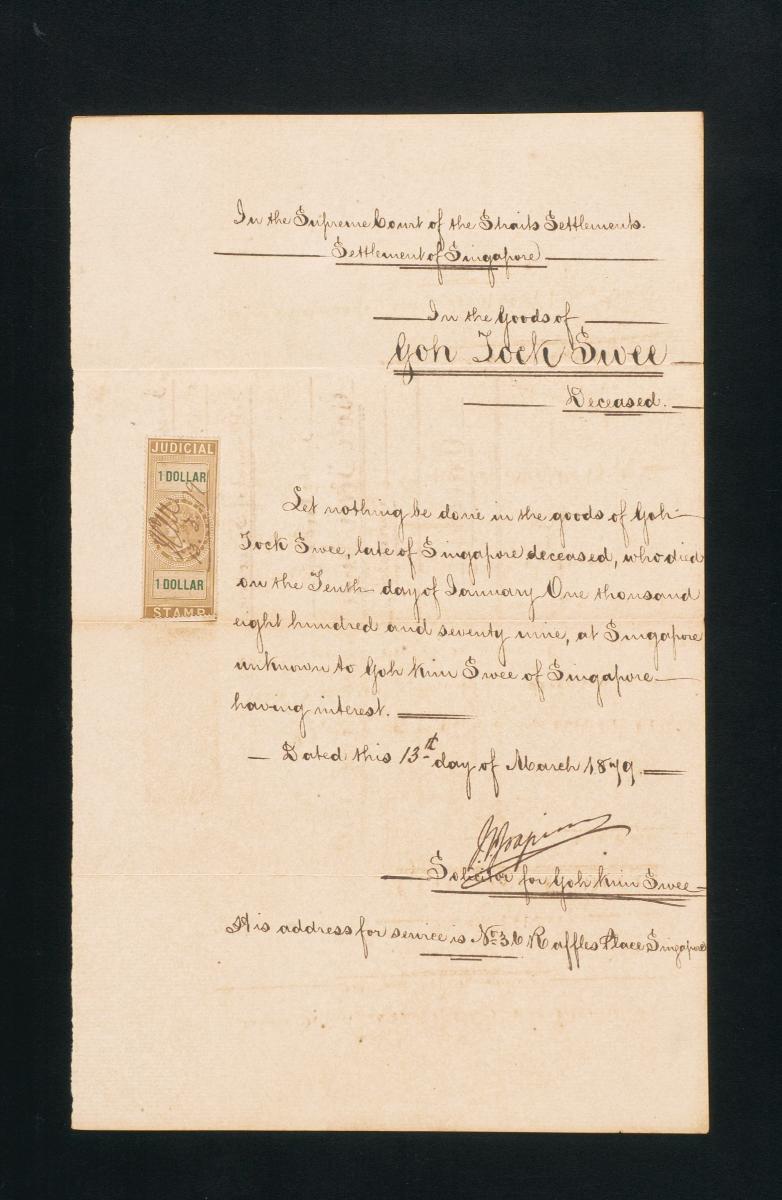 In the Supreme Court of the Straits Settlements.
Settlement of Singapore
In the Goods of
Goh Tock Swee
Deceased.
JUDICIAL
1 DOLLAR
1 DOLLAR
STAMP.
Let nothing be done in the goods of Goh
Tock Swee, late of Singapore deceased, who died
on the Tenth day of January One thousand
eight hundred and seventy nine, at Singapore
unknown to Goh Kim Swee of Singapore
having interest.
Dated this 13th day of March 1879.
Solicitor for Goh Kim Swee
His address for service is No. 36 Raffles Place Singapore